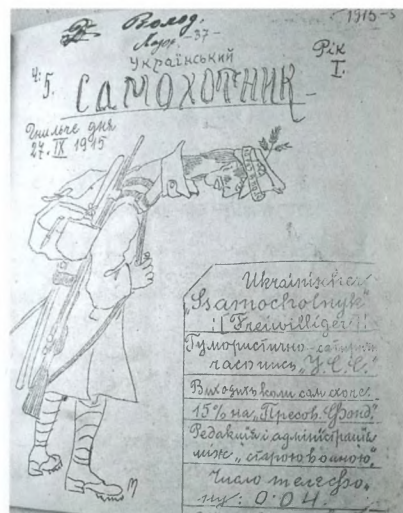 1915-
Волод.
-37-
Український
Рік
I.
ч: 5.
САМОХОТНИК-
Гнильче дня
27. IX 1915
Ukrainischer
"Ssamochotnyk"
(Freiwilliger)
Гумористично-сатирич.
часпись "У.С.С."
Виходить коли сам схоче.
15% на "Пресов. Фонд"
Редакція і адміністрація
між "старою воиною"
Число телефо-
ну: 0.04.